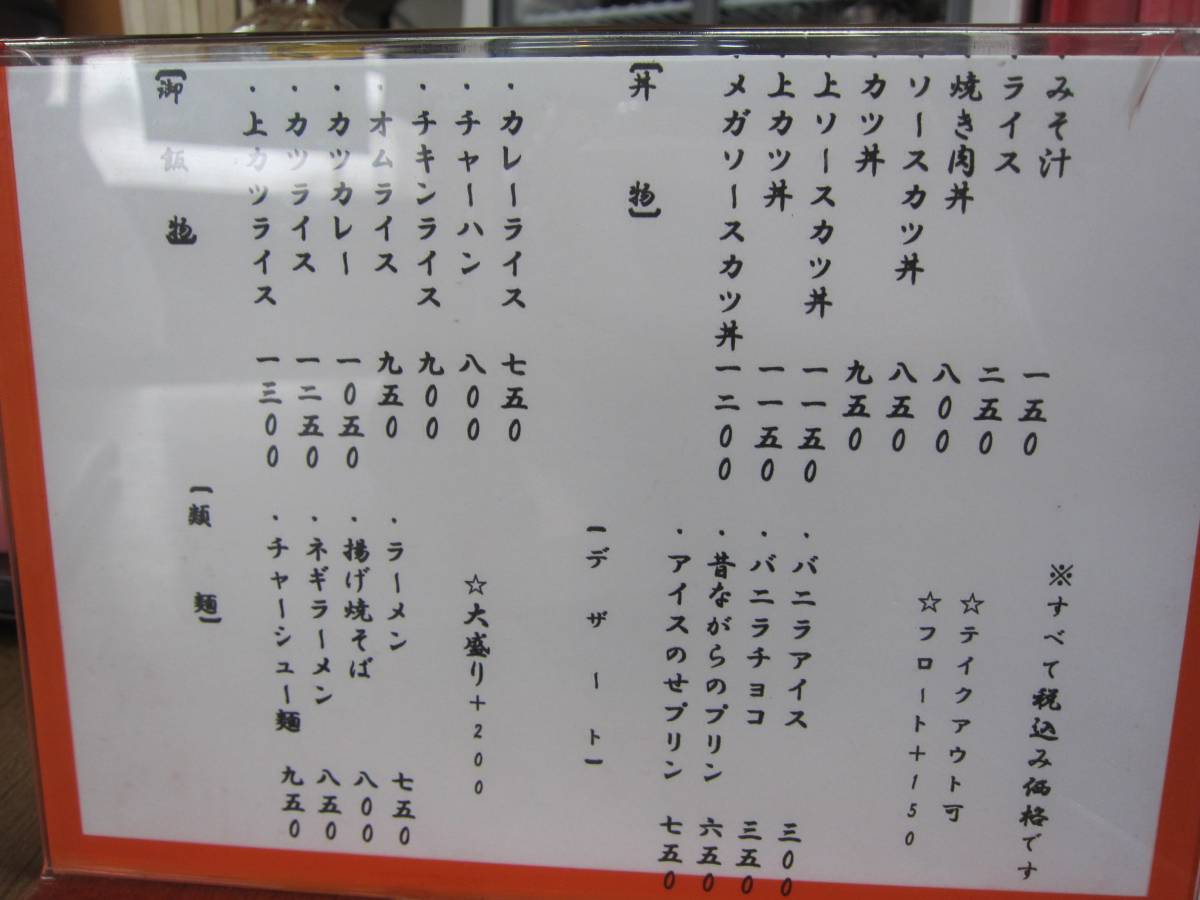 ・みそ汁 一五0
・ライス 二五0
・焼き肉丼 八00
・ソースカツ丼 八五0
・カツ丼 九五0
・上ソースカツ丼 一一五0
・上カツ丼 一一五0
・メガソースカツ丼 一二00
【丼 物】
・カレーライス 七五0
・チャーハン 八00
・チキンライス 九00
・オムライス 九五0
・カツカレー 一0五0
・カツライス 一二五0
・上カツライス 一三00
【御 飯 物】
※すべて税込み価格です
☆テイクアウト可
☆フロート+150
・バニラアイス 三00
・バニラチョコ 三五0
・昔ながらのプリン 六五0
・アイスのせプリン 七五0
【デザート】
☆大盛り+200
・ラーメン 七五0
・揚げ焼そば 八00
・ネギラーメン 八五0
・チャーシュー麺 九五0
【類 麺】